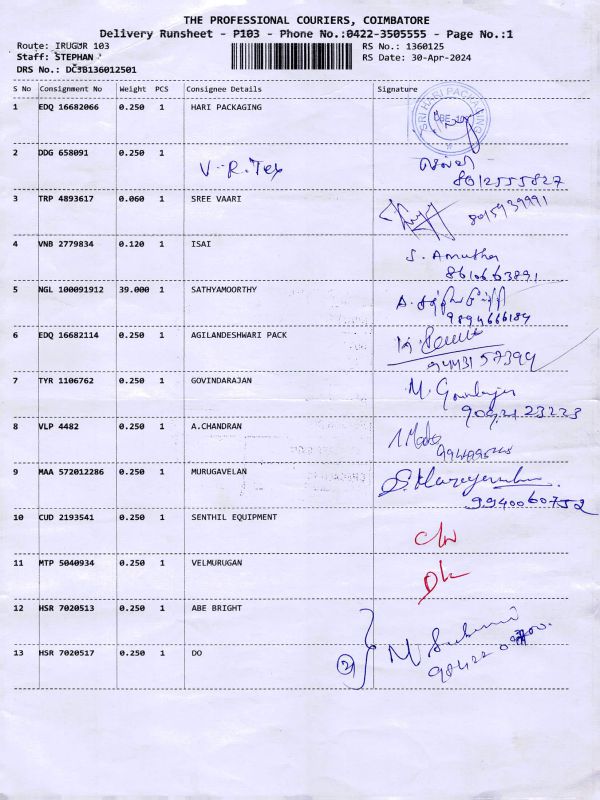 THE PROFESSIONAL COURIERS, COIMBATORE
Delivery Runsheet - P103 - Phone No.:0422-3505555 - Page No.:1
Route: IRUGUR 103 RS No.: 1360125
Staff: STEPHAN RS Date: 30-Apr-2024
DRS No.: DCJB136012501
S No Consignment No Weight PCS Consignee Details Signature
1 EDQ 16682066 0.250 1 HARI PACKAGING
SRI HARI PACKAGING
2 DDG 658091 0.250 1
V.R.Tex
8012555827
3 TRP 4893617 0.060 1 SREE VAARI
8015939991
4 VNB 2779834 0.120 1 ISAI
S. Amutha
8610663891
5 NGL 100091912 39.000 1 SATHYAMOORTHY
9894666184
6 EDQ 16682114 0.250 1 AGILANDESHWARI PACK
9443157394
7 TYR 1106762 0.250 1 GOVINDARAJAN
M.
8 VLP 4482 0.250 1 A.CHANDRAN
9 MAA 572012286 0.250 1 MURUGAVELAN
9940060752
10 CUD 2193541 0.250 1 SENTHIL EQUIPMENT
11 MTP 5040934 0.250 1 VELMURUGAN
12 HSR 7020513 0.250 1 ABE BRIGHT
13 HSR 7020517 0.250 1 DO
2 M